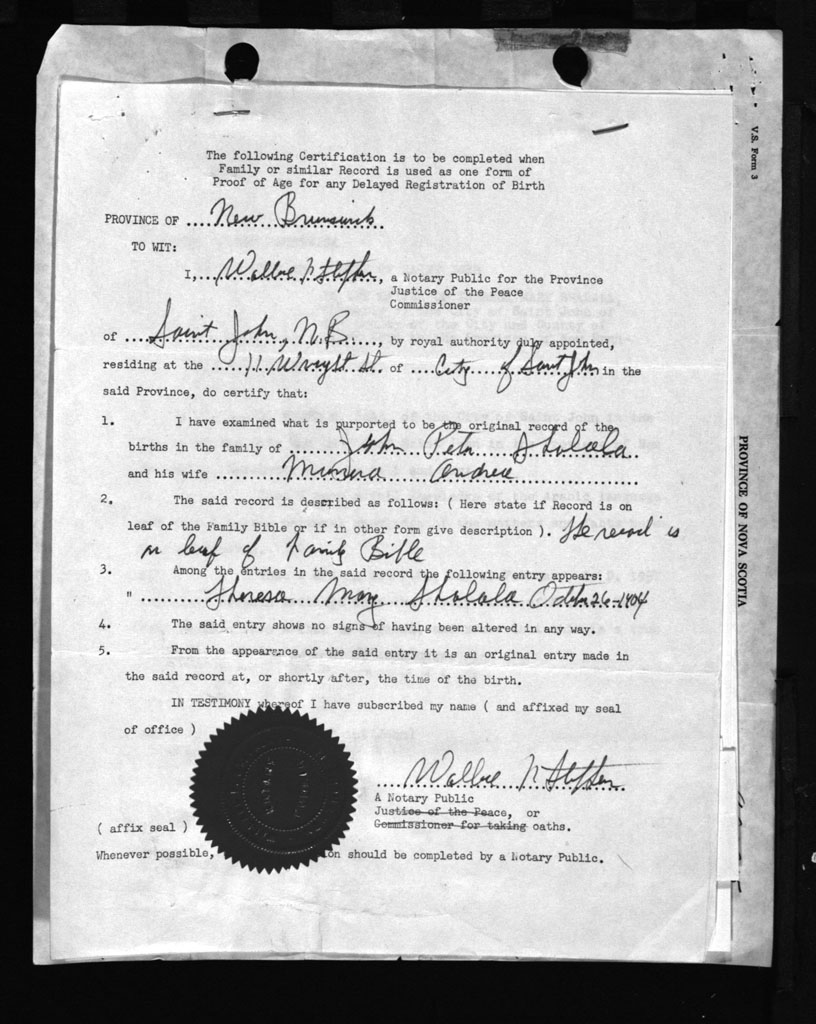 The following Certification is to be completed when
Family or similar Record is used as one form of
Proof of Age for any Delayed Registration of Birth
PROVINCE OF ... New Brunswick
TO WIT:
I, ... a Notary Public for the Province
Justice of the Peace
Commissioner
of ... Saint John, N.B. ..., by royal authority duly appointed,
residing at the ... 11 Wright St. of ... City of Saint John in the
said Province, do certify that:
1. I have examined what is purported to be the original record of the
births in the family of ... John Peter Shalala
and his wife ... Andrea ...
2. The said record is described as follows: ( Here state if Record is on
leaf of the Family Bible or if in other form give description ). The record is
on leaf of Family Bible
3. Among the entries in the said record the following entry appears:
" ... Theresa May Shalala October 26-1904
4. The said entry shows no signs of having been altered in any way.
5. From the appearance of the said entry it is an original entry made in
the said record at, or shortly after, the time of the birth.
IN TESTIMONY whereof I have subscribed my name ( and affixed my seal
of office )
A Notary Public
Justice of the Peace, or
( affix seal ) Commissioner for taking oaths.
Whenever possible, on should be completed by a Notary Public.
V.S. Form 3
PROVINCE OF NOVA SCOTIA